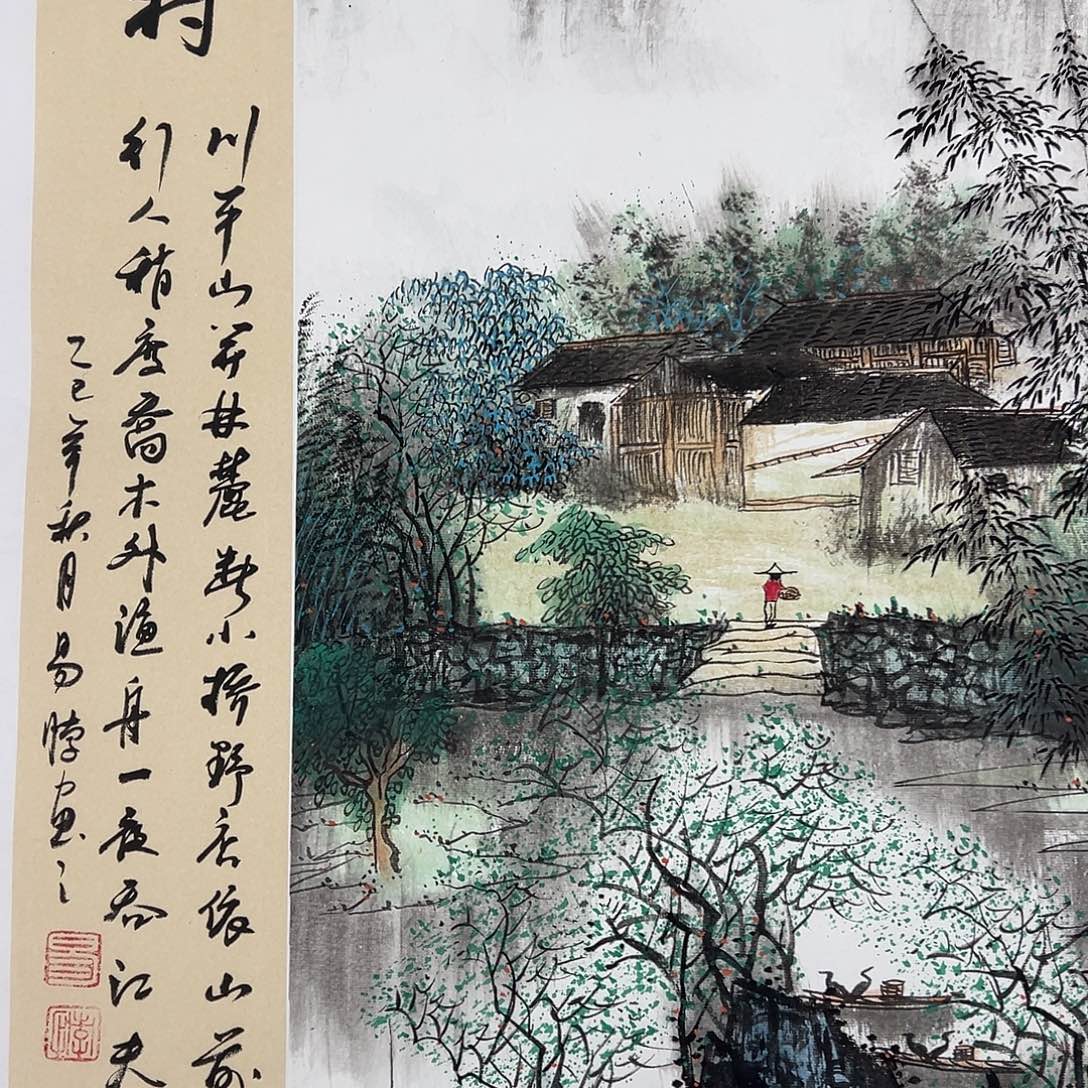 村
川平山开林麓断小橋野店依山前
行人稍度喬木外渔舟一葉吞江天
乙巳年秋月易画之